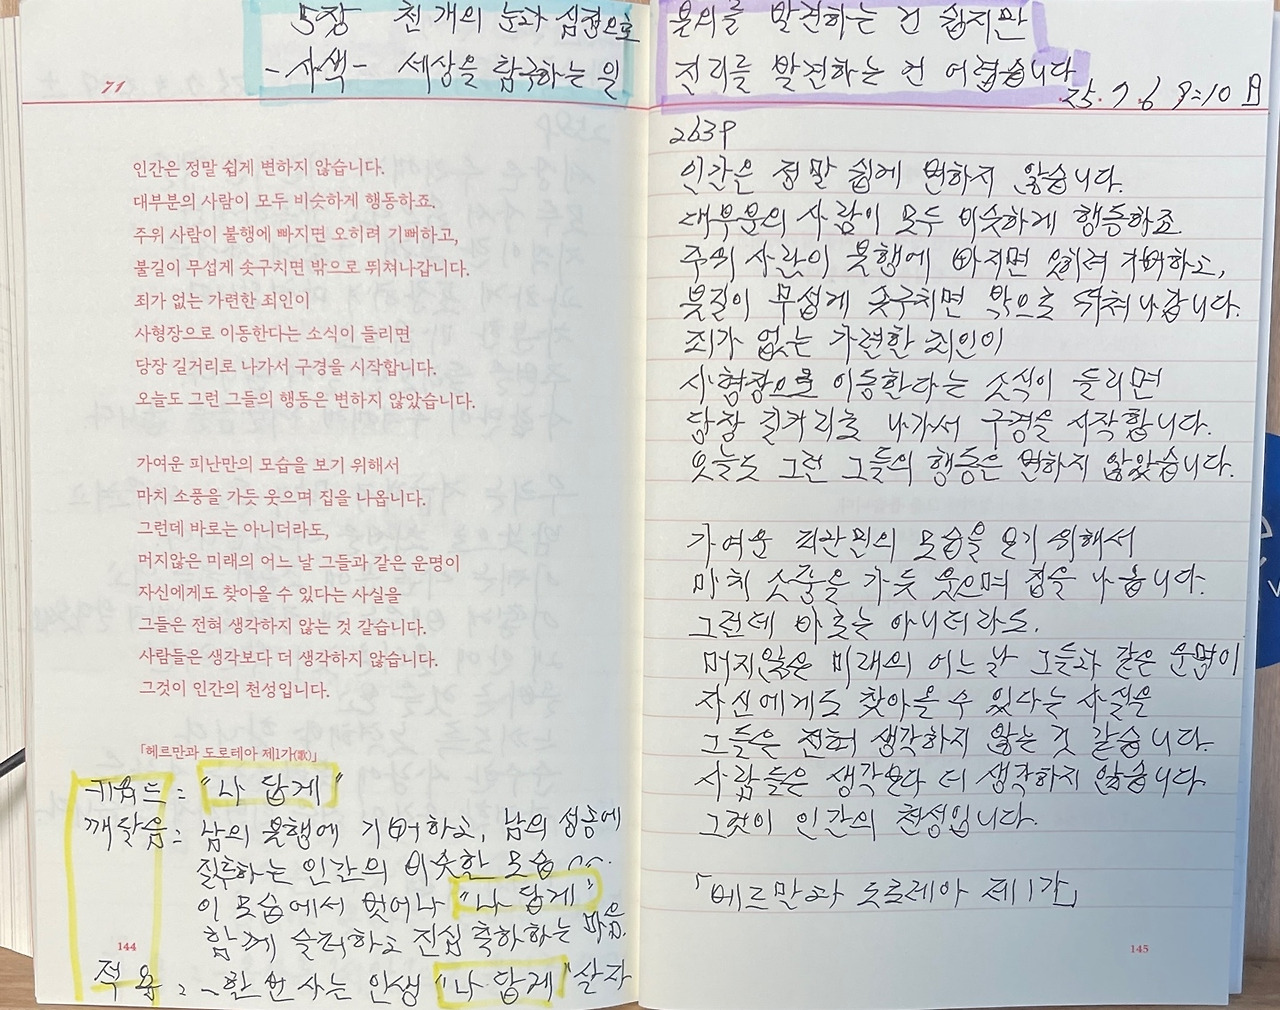 5장 천 개의 눈과 심경으로
-사색- 세상을 탐구하는 일
71
인간은 정말 쉽게 변하지 않습니다.
대부분의 사람이 모두 비슷하게 행동하죠.
주위 사람이 불행에 빠지면 오히려 기뻐하고,
불길이 무섭게 솟구치면 밖으로 뛰쳐나갑니다.
죄가 없는 가련한 죄인이
사형장으로 이동한다는 소식이 들리면
당장 길거리로 나가서 구경을 시작합니다.
오늘도 그런 그들의 행동은 변하지 않았습니다.
가여운 피난만의 모습을 보기 위해서
마치 소풍을 가듯 웃으며 집을 나옵니다.
그런데 바로는 아니더라도,
머지않은 미래의 어느 날 그들과 같은 운명이
자신에게도 찾아올 수 있다는 사실을
그들은 전혀 생각하지 않는 것 같습니다.
사람들은 생각보다 더 생각하지 않습니다.
그것이 인간의 천성입니다.
「헤르만과 도로테아 제1가(歌)」
키워드 : "나 답게"
깨달음 : 남의 불행에 기뻐하고, 남의 성공에
질투하는 인간의 비슷한 모습
이 모습에서 벗어나 "나 답게"
함께 슬퍼하고 진심 축하하는 마음.
144
적용 : 한 번 사는 인생 "나 답게" 살자
문의를 발견하는 건 쉽지만
진리를 발견하는 건 어렵습니다
25. 7. 6 8:10 日
263P
인간은 정말 쉽게 변하지 않습니다.
대부분의 사람이 모두 비슷하게 행동하죠
주위 사람이 불행에 빠지면 오히려 기뻐하고,
불길이 무섭게 솟구치면 밖으로 뛰쳐나갑니다.
죄가 없는 가련한 죄인이
사형장으로 이동한다는 소식이 들리면
당장 길거리로 나가서 구경을 시작합니다.
오늘도 그런 그들의 행동은 변하지 않았습니다.
가여운 피난민의 모습을 보기 위해서
마치 소풍을 가듯 웃으며 집을 나옵니다.
그런데 바로는 아니더라도.
머지않은 미래의 어느 날 그들과 같은 운명이
자신에게도 찾아올 수 있다는 사실을
그들은 전혀 생각하지 않는 것 같습니다.
사람들은 생각보다 더 생각하지 않습니다.
그것이 인간의 천성입니다.
「헤르만과 도로테아 제1가」
145